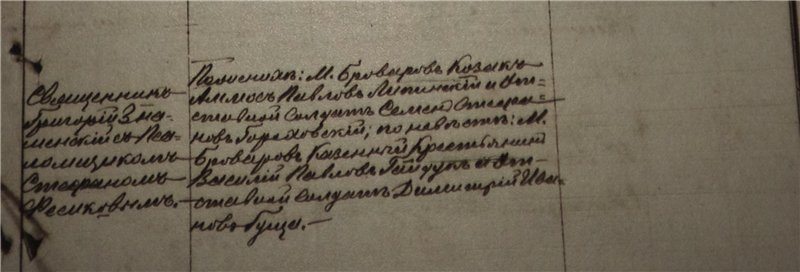 Священникъ
Григорій Зна-
менскій съ Пса-
ломщикомъ
Стефаномъ
Фесиковымъ.-
По женихѣ: М. Броваровъ Козакъ
Аммосъ Павловъ Липинскій и От-
ставной Солдатъ Семенъ Стефа-
новъ Гороховскій; по невѣстѣ: М.
Броваровъ Казенный Крестьянинъ
Василій Павловъ Гайдукъ и От-
ставной Солдатъ Димитрій Ива-
новъ Гуща.-